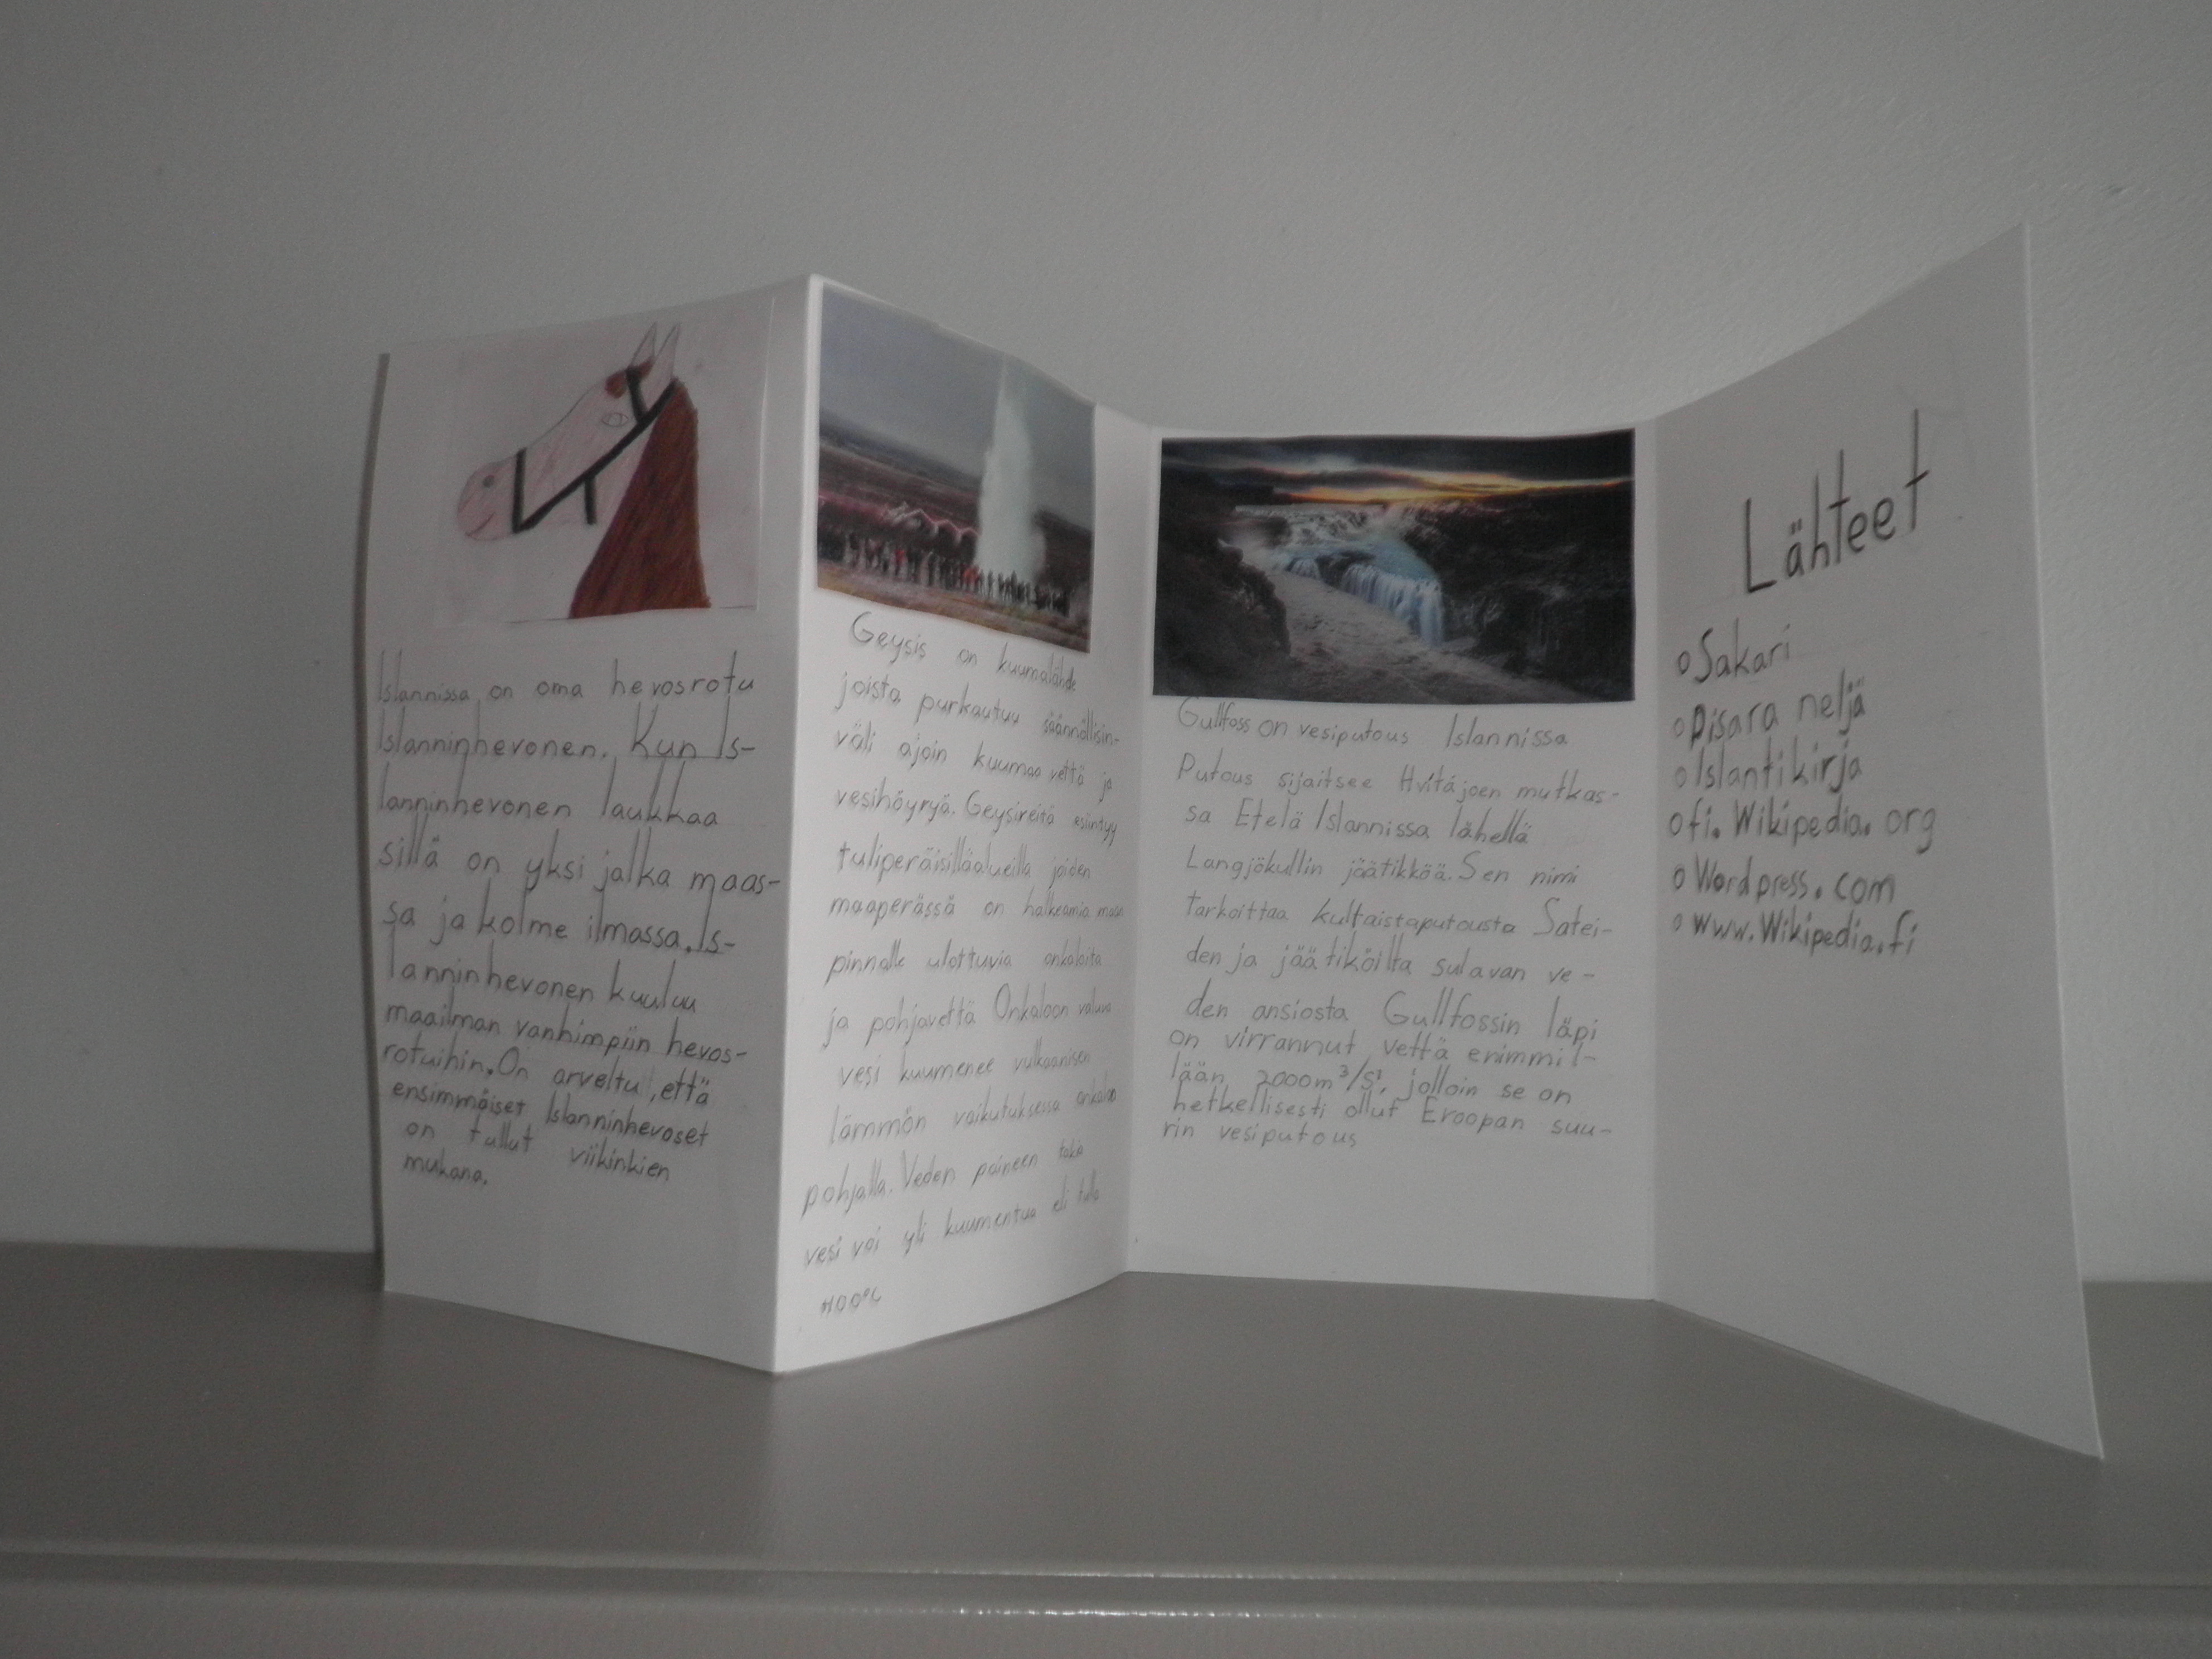 Islannissa on oma hevosrotu
Islanninhevonen. Kun Is-
lanninhevonen laukkaa
sillä on yksi jalka maas-
sa ja kolme ilmassa. Is-
lanninhevonen kuuluu
maailman vanhimpiin hevos-
rotuihin. On arveltu, että
ensimmäiset Islanninhevoset
on tullut viikinkien
mukana.
Geysis on kuumalähde
joista purkautuu säännöllisin-
väli ajoin kuumaa vettä ja
vesihöyryä. Geysireitä esiintyy
tuliperäisilläalueilla joiden
maaperässä on halkeamia maan
pinnalle ulottuvia onkaloita
ja pohjavettä Onkaloon valuva
vesi kuumenee vulkaanisen
lämmön vaikutuksessa onkalon
pohjalla. Veden paineen takia
vesi voi yli kuumentua eli tulla
100°C
Gullfoss on vesiputous Islannissa
Putous sijaitsee Hvítájoen mutkas-
sa Etelä Islannissa lähellä
Langjökullin jäätikköä. Sen nimi
tarkoittaa kultaistaputousta Satei-
den ja jäätiköilta sulavan ve-
den ansiosta Gullfossin läpi
on virrannut vettä enimmil-
lään 2000m³/S, jolloin se on
hetkellisesti ollut Eroopan suu-
rin vesiputous
Lähteet
o Sakari
o pisara neljä
o Islantikirja
o fi. Wikipedia. org
o Wordpress. com
o www.Wikipedia.fi